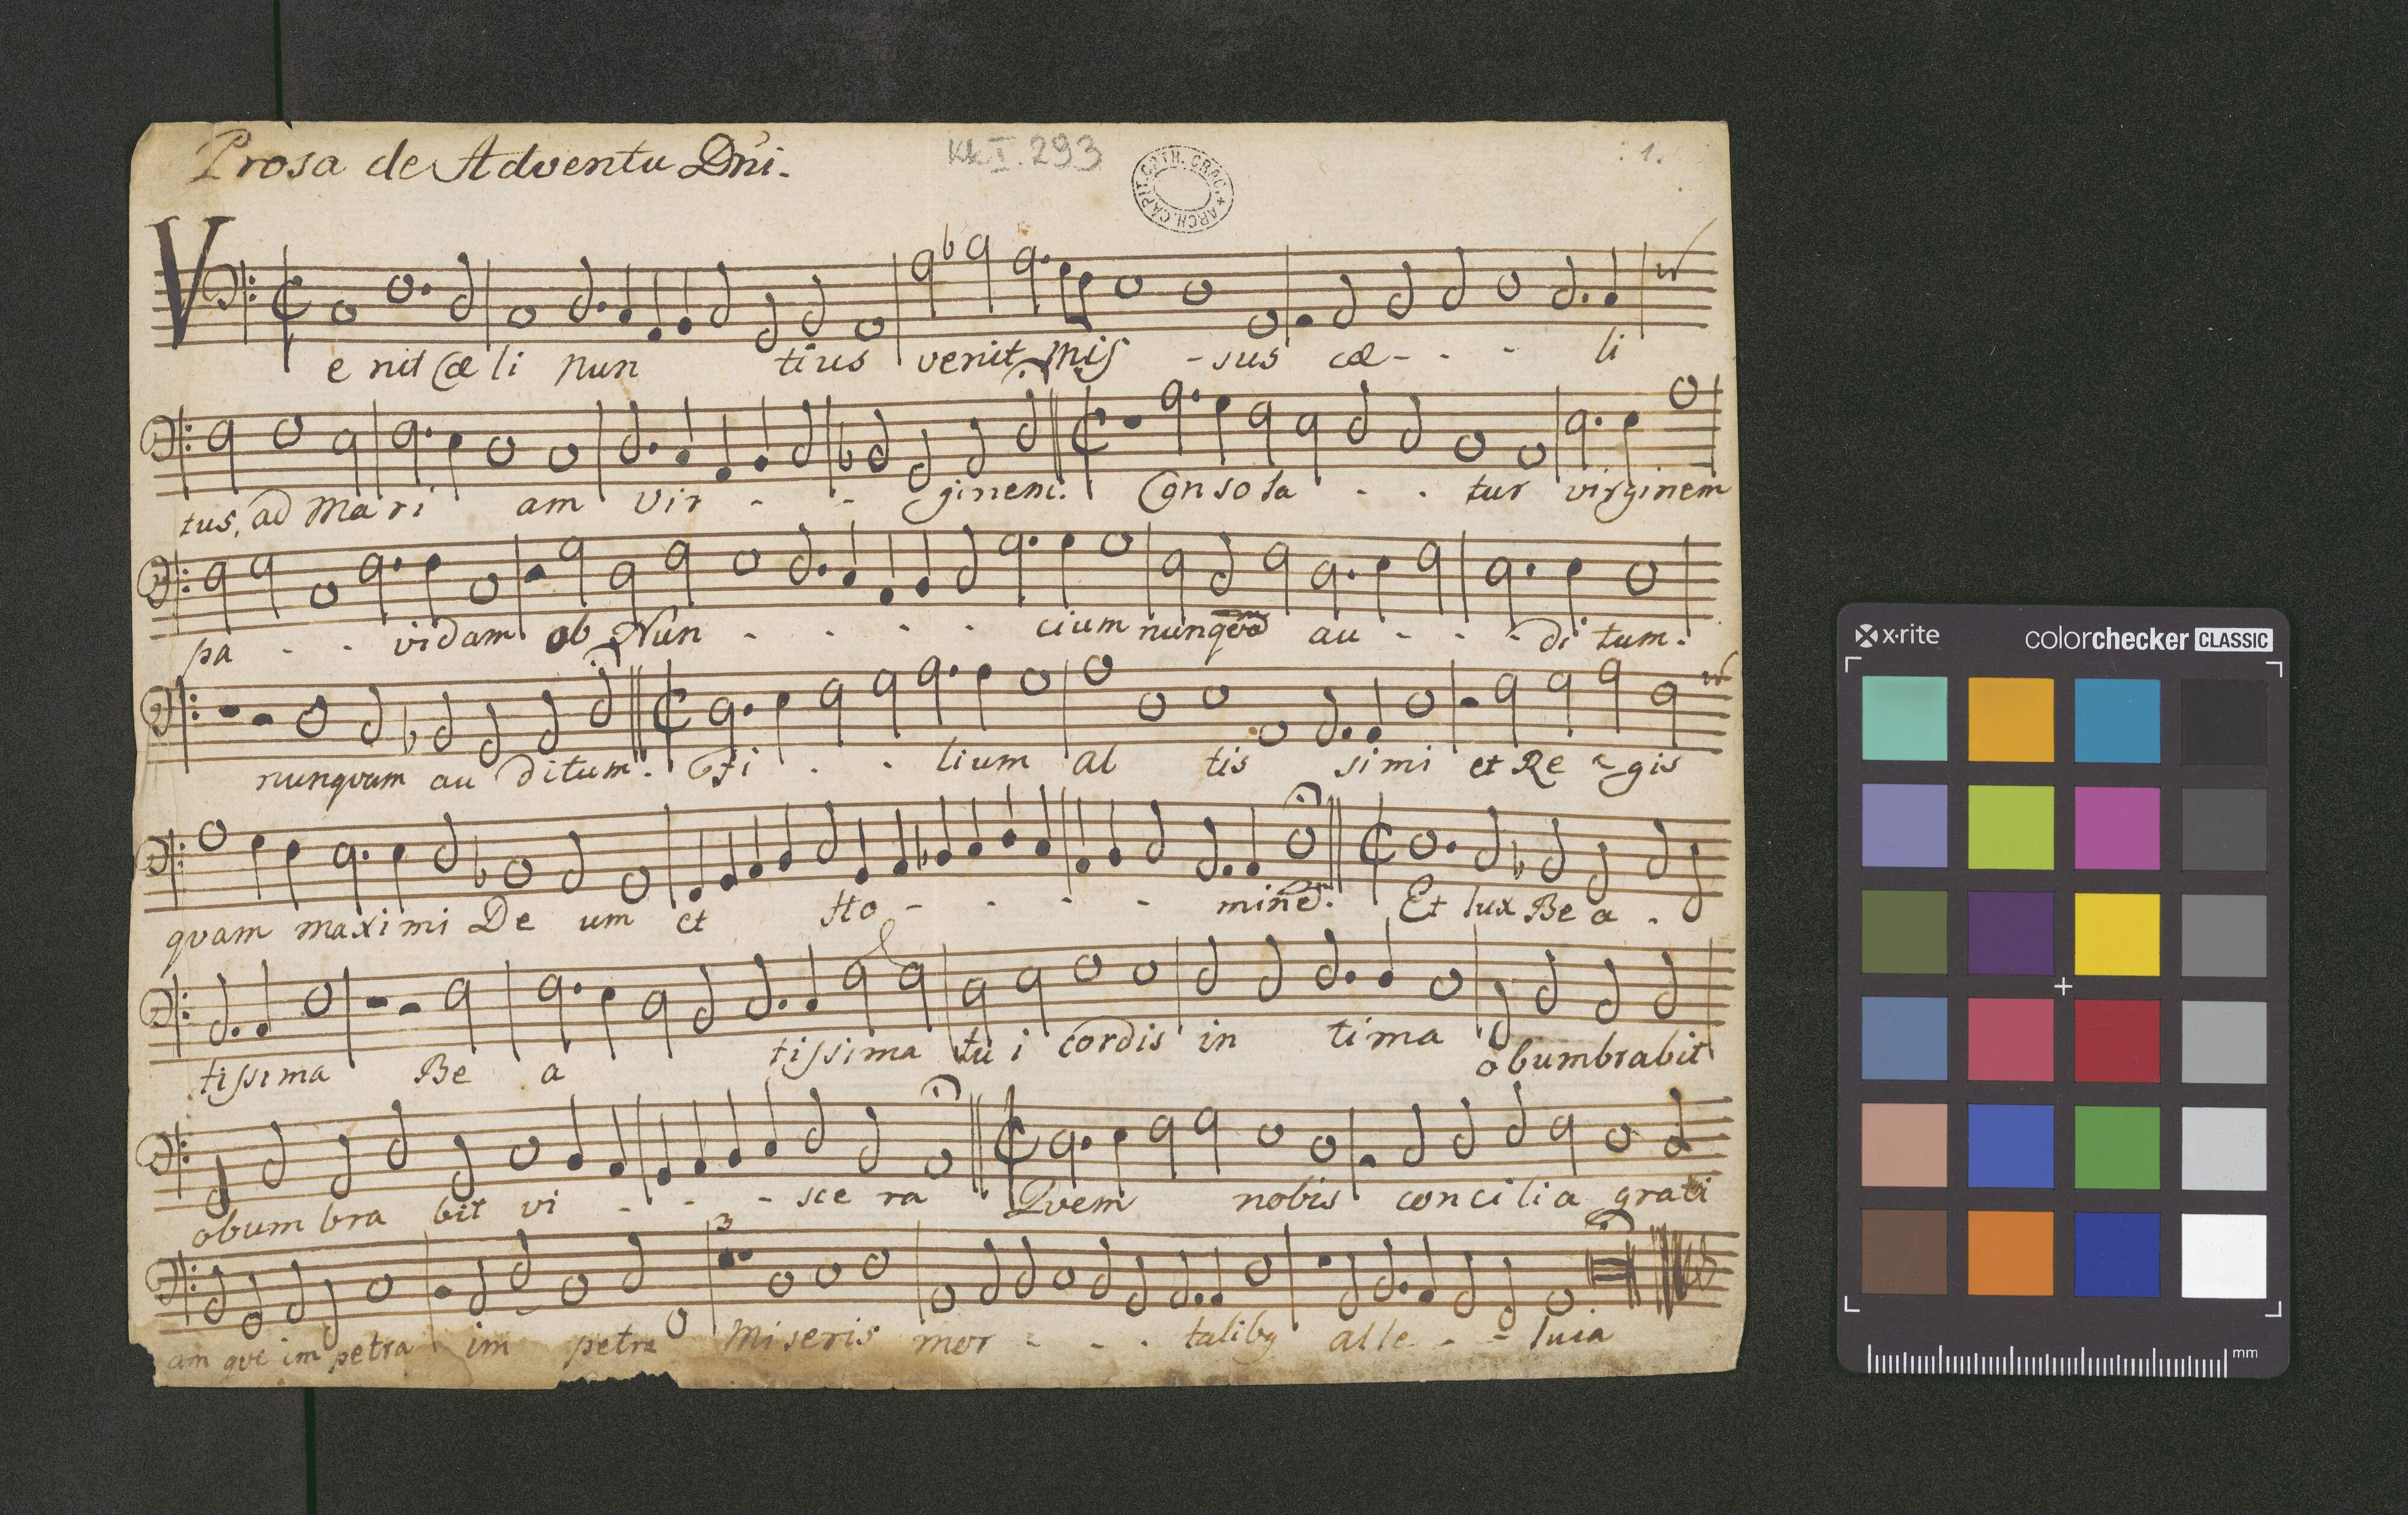 Prosa de Adventu Dni.
Kk I. 293
1.
ARCH. CAPIT. CATH. CRAC.
Venit Cæli nun tius venit mis - sus cæ - - - li
tus, ad Mari am vir - - - ginem. Consola - - tur virginem
pa - - vidam ob Nun - - - - - cium nunqvā au - - - di tum.
nunqvam au ditum. Fi - - lium al tis simi et Re - gis
qvam maximi De um et Ho - - - - mine. Et lux Be a -
tissima Be a tissima tu i cordis in tima obumbrabit
obum bra bit vi - - - sce ra Qvem nobis concilia grati
am qve im petra im petra Miseris mor - - - talibq alle - - luia
3
x·rite
colorchecker CLASSIC
mm